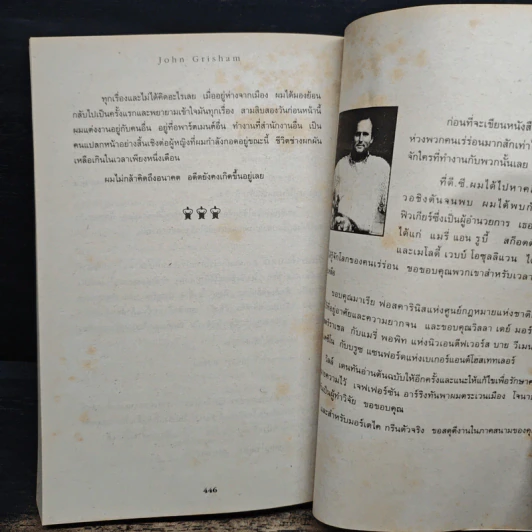 John Grisham
ทุกเรื่องและไม่ได้คิดอะไรเลย เมื่ออยู่ห่างจากเมือง ผมได้มองย้อน
กลับไปเป็นครั้งแรกและพยายามเข้าใจมันทุกเรื่อง สามสิบสองวันก่อนหน้านี้
ผมแต่งงานอยู่กับคนอื่น อยู่ที่อพาร์ตเมนต์อื่น ทำงานที่สำนักงานอื่น เป็น
คนแปลกหน้าอย่างสิ้นเชิงต่อผู้หญิงที่ผมกำลังกอดอยู่ขณะนี้ ชีวิตช่างผกผัน
เหลือเกินในเวลาเพียงหนึ่งเดือน
ผมไม่กล้าคิดถึงอนาคต อดีตยังคงเกิดขึ้นอยู่เลย
446
ก่อนที่จะเขียนหนังสื
ห่วงพวกคนเร่ร่อนมากสักเท่า
จักใครที่ทำงานกับพวกนั้นเลย
ที่ ดี.ซี. ผมได้ไปหาค
วอชิงตันจนพบ ผมได้พบก
ฟิวเกียร์ซึ่งเป็นผู้อำนวยการ เธอ
ได้แก่ แมรี่ แอน รูบี้ สก็อต
และเมโลดี้ เวบบ์ โอซุลลิแวน
โลกของคนเร่ร่อน ขอขอบคุณพวกเขาสำหรับเวลา
ขอบคุณมาเรีย ฟอสคารินิสแห่งศูนย์กฎหมายแห่งชาติ
อยู่อาศัยและความยากจน และขอบคุณวิลลา เดย์ มอร์
กับแมรี่ พอพิท แห่งนิวเอนดีฟเวอร์ส บาย วีเมน
กับบรูซ แซนฟอร์ดแห่งเบเกอร์แอนด์โฮสเทตเลอร์
วิลล์ เดนทันอ่านต้นฉบับให้อีกครั้งและแนะให้แก้ไขเพื่อรักษา
ความไว้ เจฟเฟอร์ซัน อาร์ริงทันพาผมตระเวนเมือง โจนา
เป็นผู้ทำวิจัย ขอขอบคุณ
และสำหรับมอร์เดไค กรีนตัวจริง ขอสดุดีงานในภาคสนามของคุ